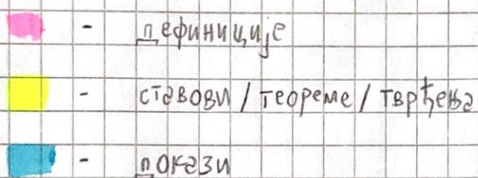 - дефиниције
- ставови / теореме / тврђења
- докази